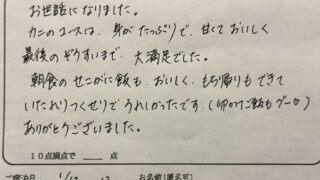 お世話になりました。
カニのコースは、身がたっぷりで、甘くておいしく
最後のぞうすいまで、大満足でした。
朝食のせこがに飯も、おいしく、もち帰りもできて
いたれりつくせりでうれしかったです。(卵かけご飯もグー♡)
ありがとうございました。
10点満点で ____ 点
ご宿泊日 1/12 お名前(匿名可)